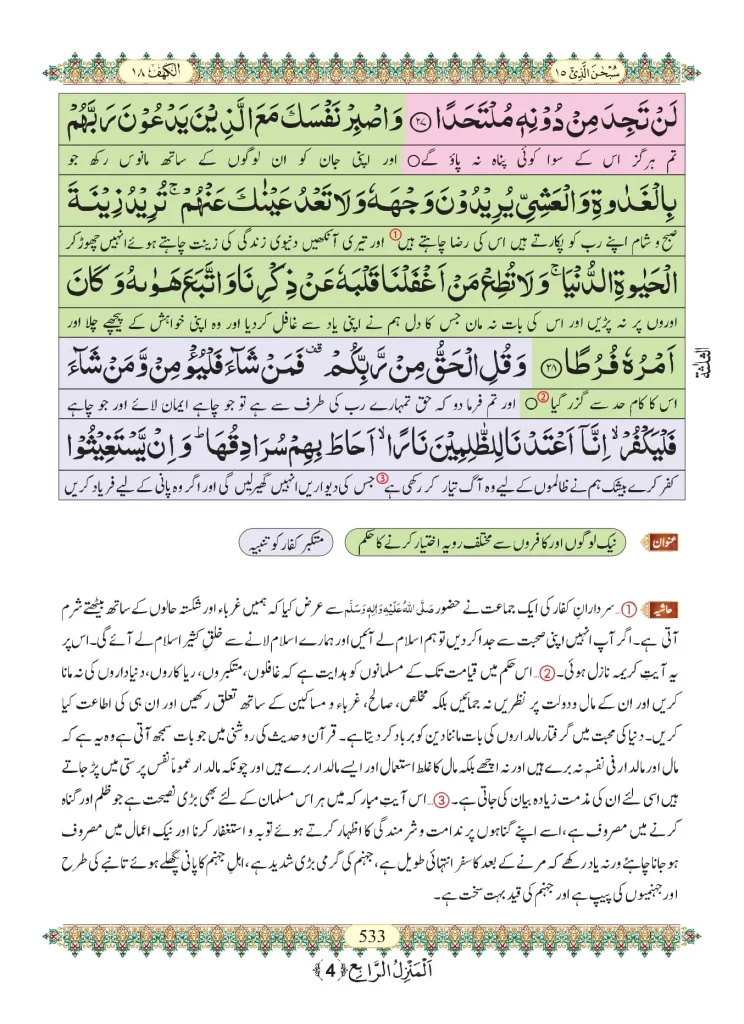 سُبْحٰنَ الَّذِیْۤ ۱۵
الكهف ۱۸
لَنْ تَجِدَ مِنْ دُوْنِهٖ مُلْتَحَدًا ﴿۲۷﴾ وَاصْبِرْ نَفْسَكَ مَعَ الَّذِیْنَ یَدْعُوْنَ رَبَّهُمْ
تم ہرگز اس کے سوا کوئی پناہ نہ پاؤ گے ○ اور اپنی جان کو ان لوگوں کے ساتھ مانوس رکھ جو
بِالْغَدٰوةِ وَالْعَشِیِّ یُرِیْدُوْنَ وَجْهَهٗ وَلَا تَعْدُ عَیْنٰكَ عَنْهُمْ ۚ تُرِیْدُ زِیْنَةَ
صبح و شام اپنے رب کو پکارتے ہیں اس کی رضا چاہتے ہیں ① اور تیری آنکھیں دنیوی زندگی کی زینت چاہتے ہوئے انہیں چھوڑ کر
الْحَیٰوةِ الدُّنْیَا ۚ وَلَا تُطِعْ مَنْ اَغْفَلْنَا قَلْبَهٗ عَنْ ذِكْرِنَا وَاتَّبَعَ هَوٰىهُ وَكَانَ
اوروں پر نہ پڑیں اور اس کی بات نہ مان جس کا دل ہم نے اپنی یاد سے غافل کردیا اور وہ اپنی خواہش کے پیچھے چلا اور
اَمْرُهٗ فُرُطًا ﴿۲۸﴾ وَقُلِ الْحَقُّ مِنْ رَّبِّكُمْ ۫ فَمَنْ شَآءَ فَلْیُؤْمِنْ وَّمَنْ شَآءَ
اس کا کام حد سے گزر گیا ② ○ اور تم فرما دو کہ حق تمہارے رب کی طرف سے ہے تو جو چاہے ایمان لائے اور جو چاہے
فَلْیَكْفُرْ ۙ اِنَّاۤ اَعْتَدْنَا لِلظّٰلِمِیْنَ نَارًا ۙ اَحَاطَ بِهِمْ سُرَادِقُهَا ؕ وَاِنْ یَّسْتَغِیْثُوْا
کفر کرے بیشک ہم نے ظالموں کے لیے وہ آگ تیار کر رکھی ہے ③ جس کی دیواریں انہیں گھیر لیں گی اور اگر وہ پانی کے لیے فریاد کریں
عنوان نیک لوگوں اور کافروں سے مختلف رویہ اختیار کرنے کا حکم متکبر کفار کو تنبیہ
حاشیہ ①... سردارانِ کفار کی ایک جماعت نے حضور صَلَّی اللہُ عَلَیْہِ وَاٰلِہٖ وَسَلَّم سے عرض کیا کہ ہمیں غرباء اور شکستہ حالوں کے ساتھ بیٹھتے شرم
آتی ہے۔ اگر آپ انہیں اپنی صحبت سے جدا کر دیں تو ہم اسلام لے آئیں اور ہمارے اسلام لانے سے خلقِ کثیر اسلام لے آئے گی۔ اس پر
یہ آیتِ کریمہ نازل ہوئی۔ ②... اس حکم میں قیامت تک کے مسلمانوں کو ہدایت ہے کہ غافلوں، متکبروں، ریاکاروں، دنیا داروں کی نہ مانا
کریں اور ان کے مال و دولت پر نظریں نہ جمائیں بلکہ مخلص، صالح، غرباء و مساکین کے ساتھ تعلق رکھیں اور ان ہی کی اطاعت کیا
کریں۔ دنیا کی محبت میں گرفتار مالداروں کی بات ماننا دین کو برباد کر دیتا ہے۔ قرآن و حدیث کی روشنی میں جو بات سمجھ آتی ہے وہ یہ ہے کہ
مال اور مالدار فی نفسہٖ نہ برے ہیں اور نہ اچھے بلکہ مال کا غلط استعمال اور ایسے مالدار برے ہیں اور چونکہ مالدار عموماً نفس پرستی میں پڑ جاتے
ہیں اسی لئے ان کی مذمت زیادہ بیان کی جاتی ہے۔ ③... اس آیتِ مبارکہ میں ہر اس مسلمان کے لئے بھی بڑی نصیحت ہے جو ظلم اور گناہ
کرنے میں مصروف ہے، اسے اپنے گناہوں پر ندامت و شرمندگی کا اظہار کرتے ہوئے توبہ و استغفار کرنا اور نیک اعمال میں مصروف
ہو جانا چاہئے ورنہ یاد رکھے کہ مرنے کے بعد کا سفر انتہائی طویل ہے، جہنم کی گرمی بڑی شدید ہے، اہلِ جہنم کا پانی پگھلے ہوئے تانبے کی طرح
اور جہنمیوں کی پیپ ہے اور جہنم کی قید بہت سخت ہے۔
533
اَلْمَنْزِلُ الرَّابِع ﴿4﴾
الثلثة